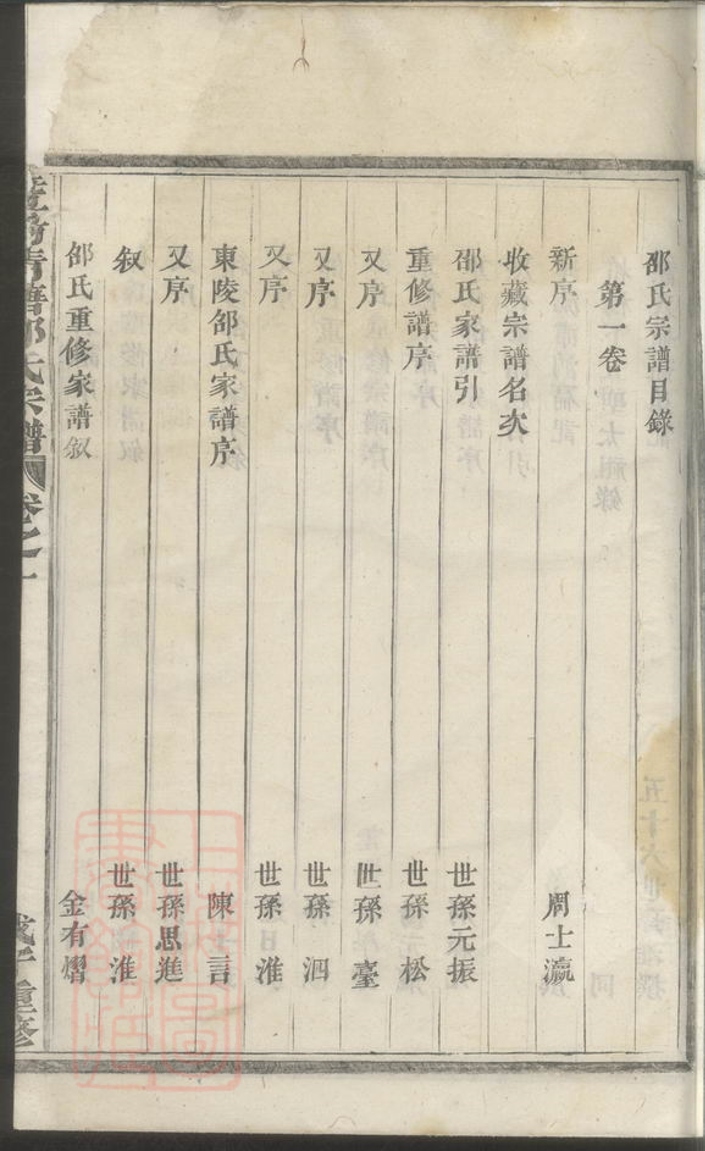 邵氏宗譜目錄
第一卷
新序 周士瀛
收藏宗譜名次
邵氏家譜引 世孫元振
重修譜序 世孫松
又序 世孫臺
又序 世孫泗
又序 世孫淮
東陵邵氏家譜序 陳士言
又序 世孫思進
叙 世孫淮
邵氏重修家譜叙 金有熠
邵氏宗譜 卷之一 重修